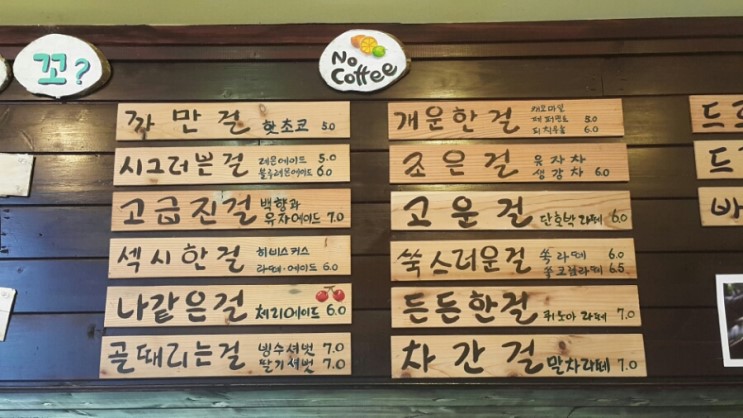 꼬?
No
Coffee
짜만걸 핫초코 5.0
시그러쁜걸 레몬에이드 5.0
블루레몬에이드 6.0
고급진걸 백향과
유자에이드 7.0
섹시한걸 히비스커스
라떼·에이드 6.0
나같은걸 체리에이드 6.0
골때리는걸 냉수셔벗 7.0
딸기셔벗 7.0
개운한걸 캐모마일
페퍼민트 5.0
피치우롱 6.0
조은걸 유자차
생강차 6.0
고운걸 단호박라떼 6.0
쑥스러운걸 쑥라떼 6.0
쑥코코라떼 6.5
든든한걸 퀴노아라떼 7.0
차간걸 말차라떼 7.0
드
드
바